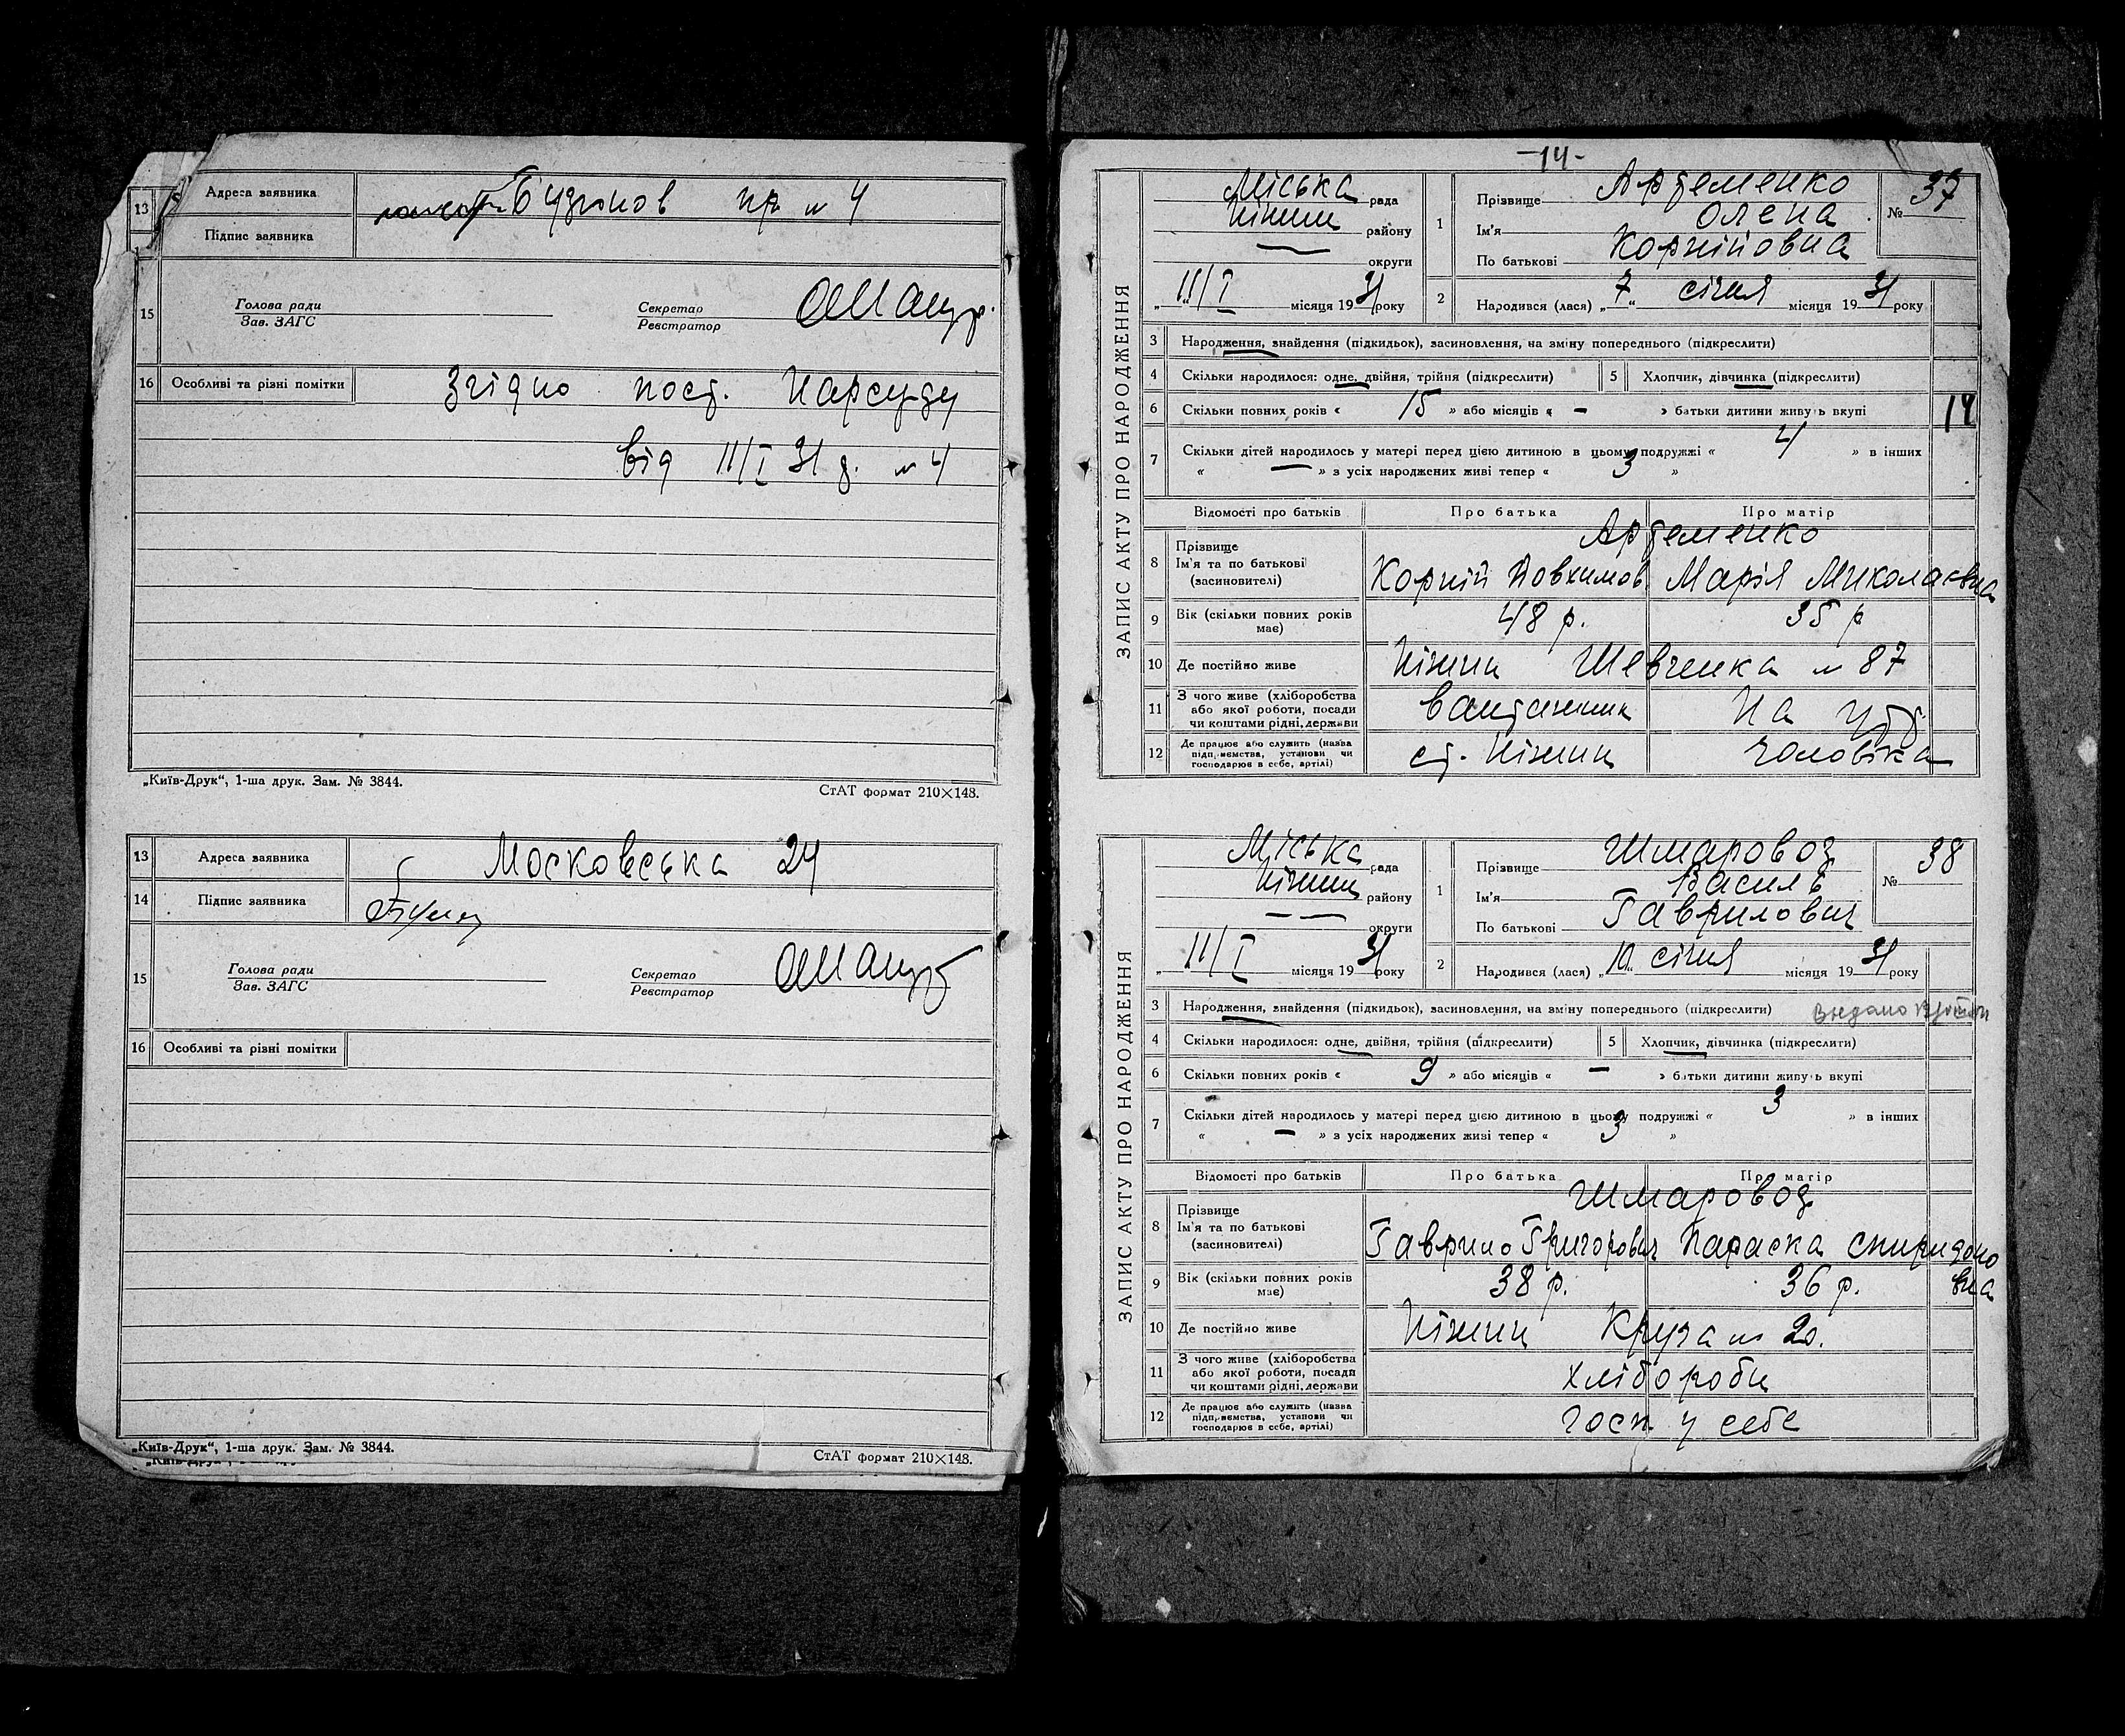 13 Адреса заявника Будьонов пр № 4
Підпис заявника
15 Голова ради Секретар
Зав. ЗАГС Реєстратор
16 Особливі та різні помітки Згідно пост. Нарсуду
від 11/I 31 р. № 4
„Київ-Друк“, 1-ша друк. Зам. № 3844.
СтАТ формат 210×148.
13 Адреса заявника Московська 24
14 Підпис заявника
15 Голова ради Секретар
Зав. ЗАГС Реєстратор
16 Особливі та різні помітки
„Київ-Друк“, 1-ша друк. Зам. № 3844.
СтАТ формат 210×148.
-14-
ЗАПИС АКТУ ПРО НАРОДЖЕННЯ
Міська рада
Ніжин району
— округи
„11/I місяця 1931 року
1 Прізвище Артеменко
Ім'я Олена
По батькові Корніїовна
№ 37
2 Народився (лася) „7“ січня місяця 1931 року
3 Народження, знайдення (підкидьок), засиновлення, на зміну попереднього (підкреслити)
4 Скільки народилося: одне, двійня, трійня (підкреслити) 5 Хлопчик, дівчинка (підкреслити)
6 Скільки повних років « 15 » або місяців « – » батьки дитини живуть вкупі
14
7 Скільки дітей народилось у матері перед цією дитиною в цьому подружжі « 4 » в інших
« — » з усіх народжених живі тепер « 3 »
Відомості про батьків Про батька Про матір
Артеменко
8 Прізвище
Ім'я та по батькові
(засиновителі)
Корній Явхимов. Марія Миколаєвна
9 Вік (скільки повних років має) 48 р. 35 р
10 Де постійно живе Ніжин Шевченка № 87
11 З чого живе (хліборобства
або якої роботи, посади
чи коштами рідні, держави
вантажник На утр
12 Де працює або служить (назва
підприємства, установи чи
господарює в себе, артілі)
ст. Ніжин чоловіка
ЗАПИС АКТУ ПРО НАРОДЖЕННЯ
Міська рада
Ніжин району
— — округи
„11/I місяця 1931 року
1 Прізвище Шмаровоз
Ім'я Василь
По батькові Гаврилович
№ 38
2 Народився (лася) „10“ січня місяця 1931 року
3 Народження, знайдення (підкидьок), засиновлення, на зміну попереднього (підкреслити)
4 Скільки народилося: одне, двійня, трійня (підкреслити) 5 Хлопчик, дівчинка (підкреслити)
6 Скільки повних років « 9 » або місяців « – » батьки дитини живуть вкупі
7 Скільки дітей народилось у матері перед цією дитиною в цьому подружжі « 3 » в інших
« – » з усіх народжених живі тепер « 3 »
Відомості про батьків Про батька Про матір
Шмаровоз
8 Прізвище
Ім'я та по батькові
(засиновителі)
Гаврило Григорович Параска Спиридоновна
9 Вік (скільки повних років має) 38 р. 36 р.
10 Де постійно живе Ніжин Круча № 20.
11 З чого живе (хліборобства
або якої роботи, посади
чи коштами рідні, держави
хлібороби
12 Де працює або служить (назва
підприємства, установи чи
господарює в себе, артілі)
госп у себе